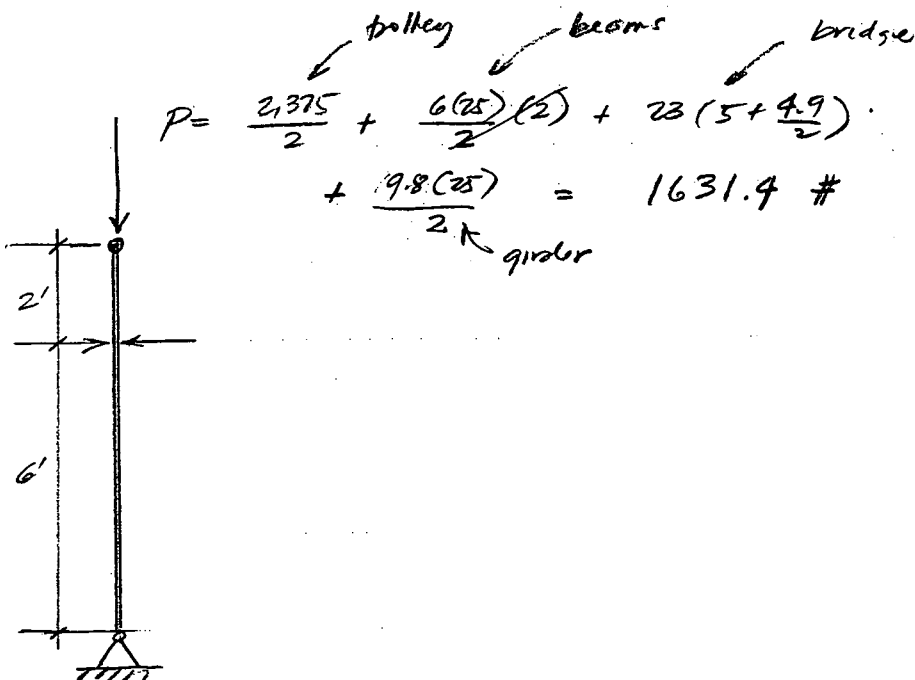 trolley beams bridge
P = 2,375/2 + 6(25)/2 (2) + 23 (5 + 4.9/2)
+ 9.8(25)/2 = 1631.4 #
girder
2'
6'